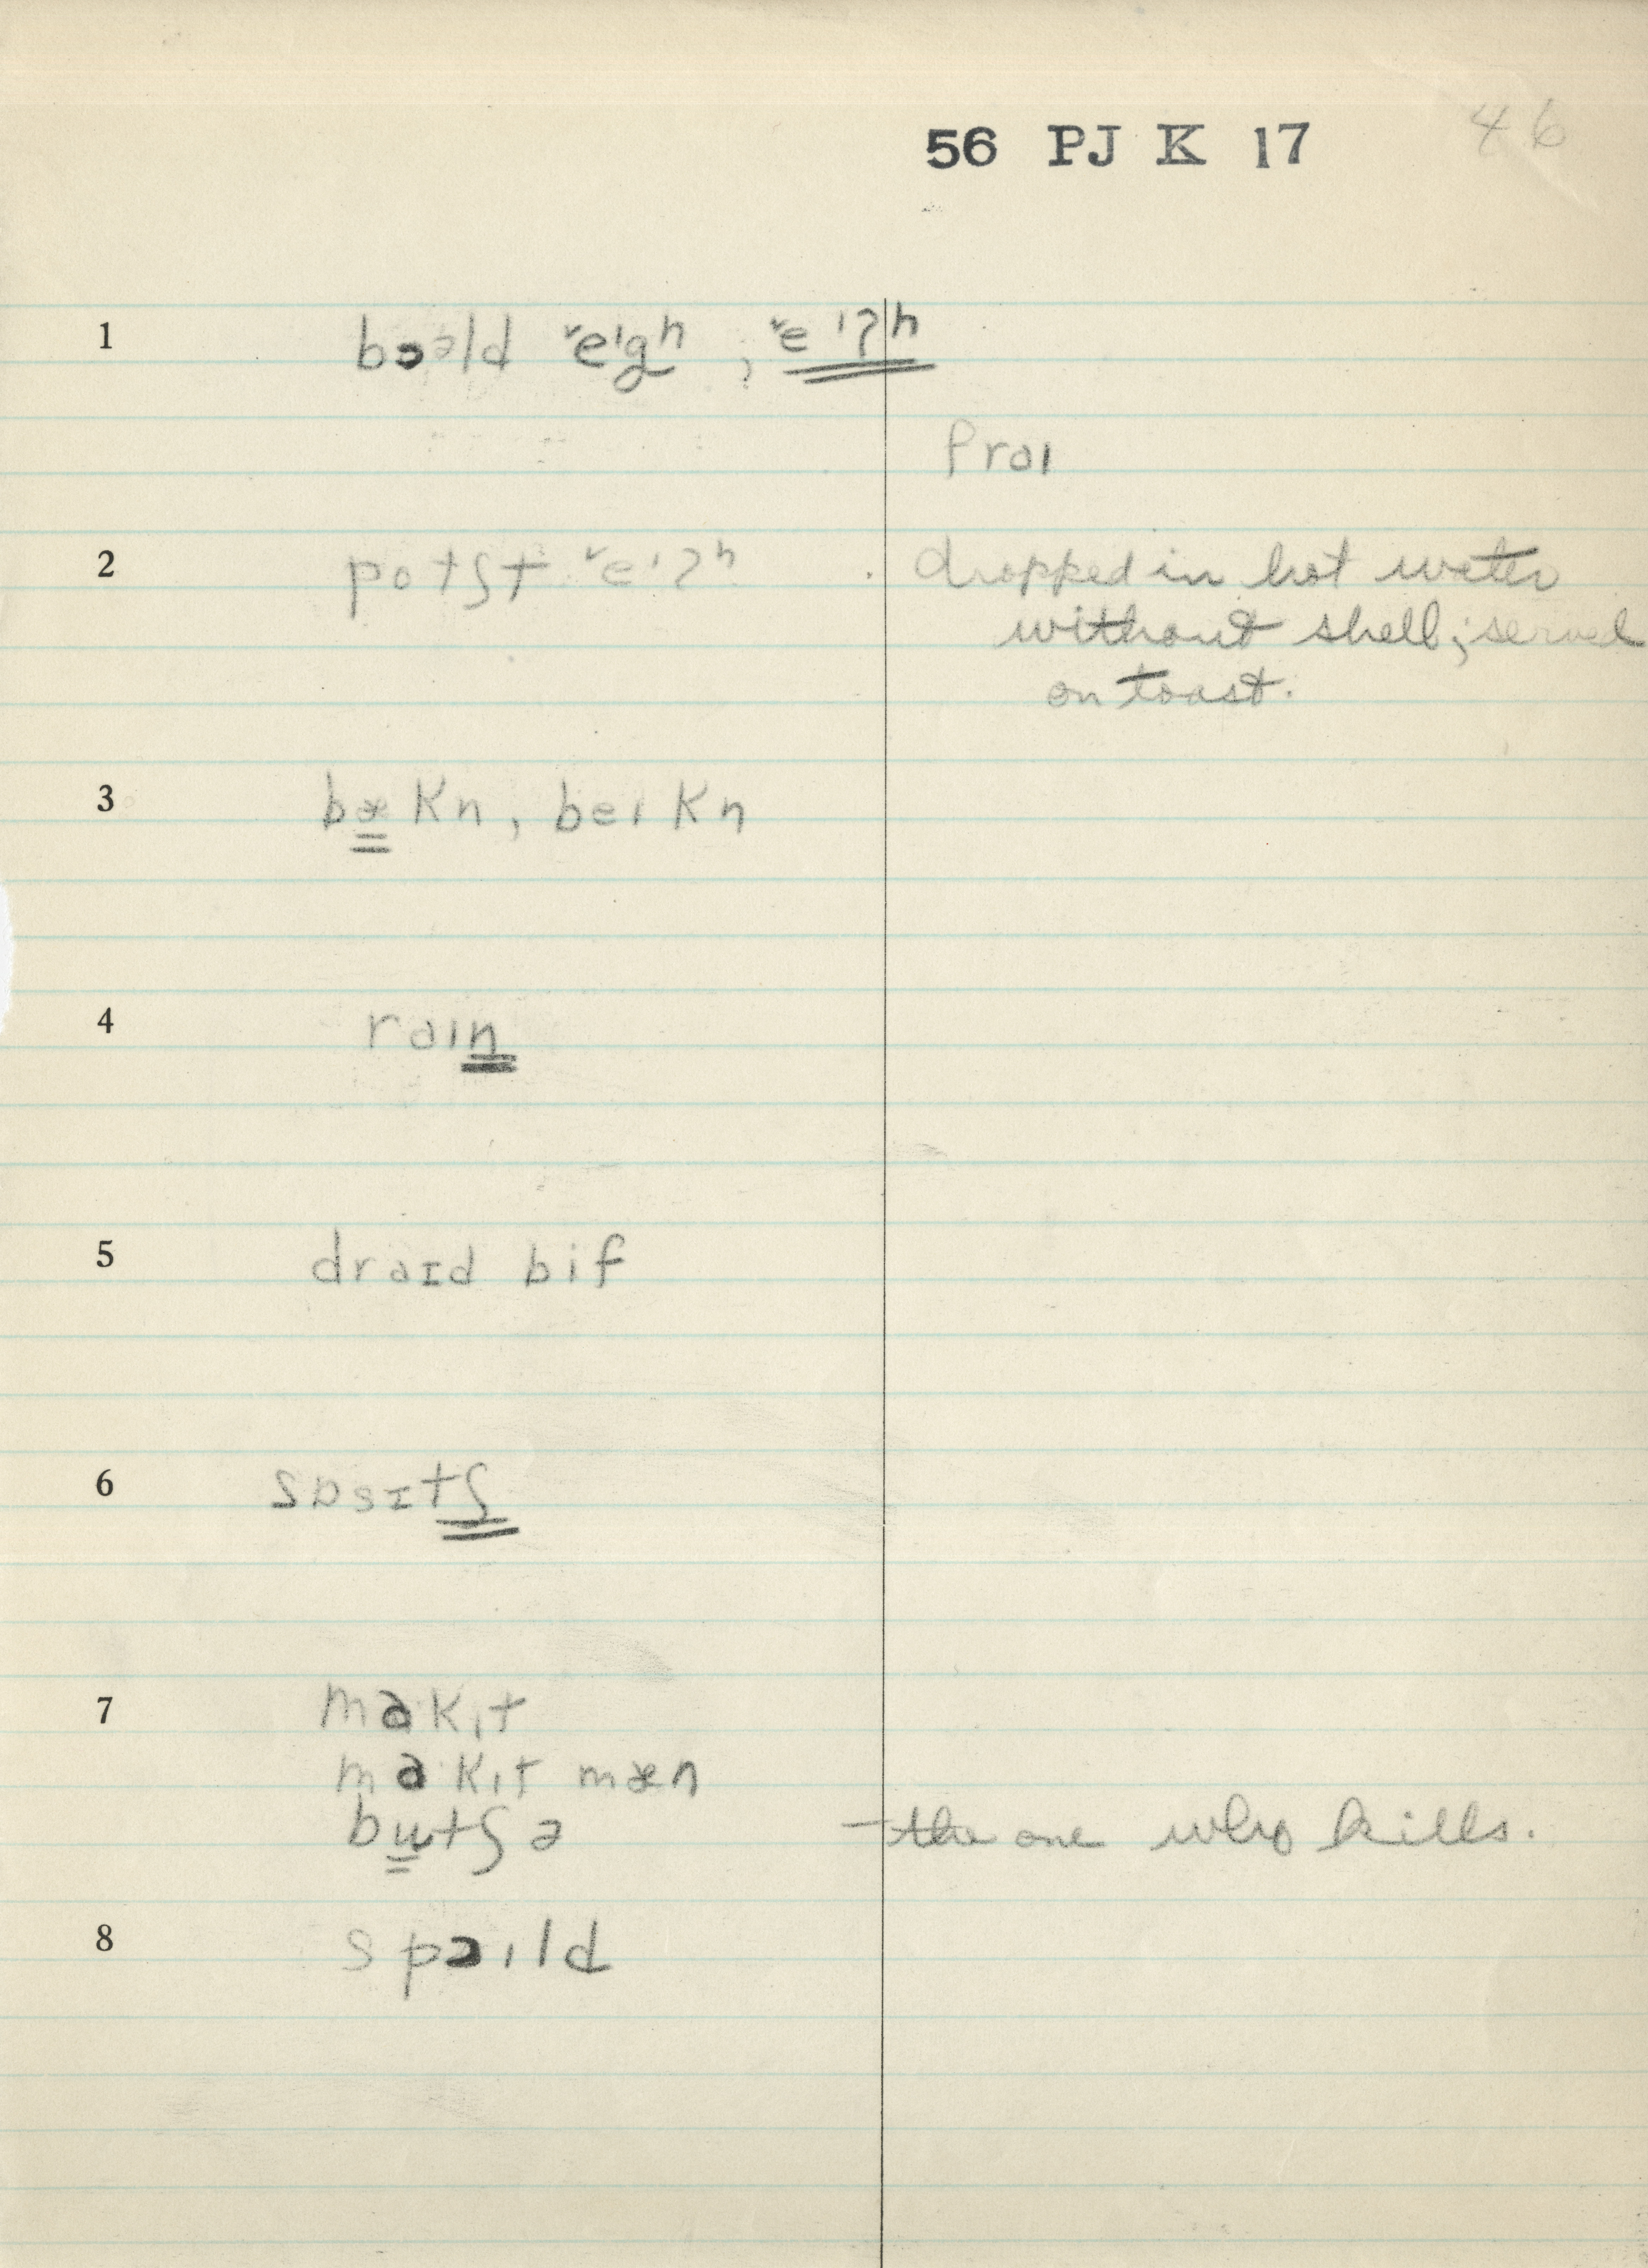 56 PJ K 17 46
1 bɔəld ˅eˡgʰ, ˅eˡʔʰ
fraɪ
2 potʃt ˅eˡʔʰ · dropped in hot water
without shell; served
on toast.
3 bækn, beɪkn
4 raɪn
5 draɪd bif
6 sɒsɪtʃ
7 makɪt
makɪt mæn
butʃə – the one who kills.
8 spɔɪld